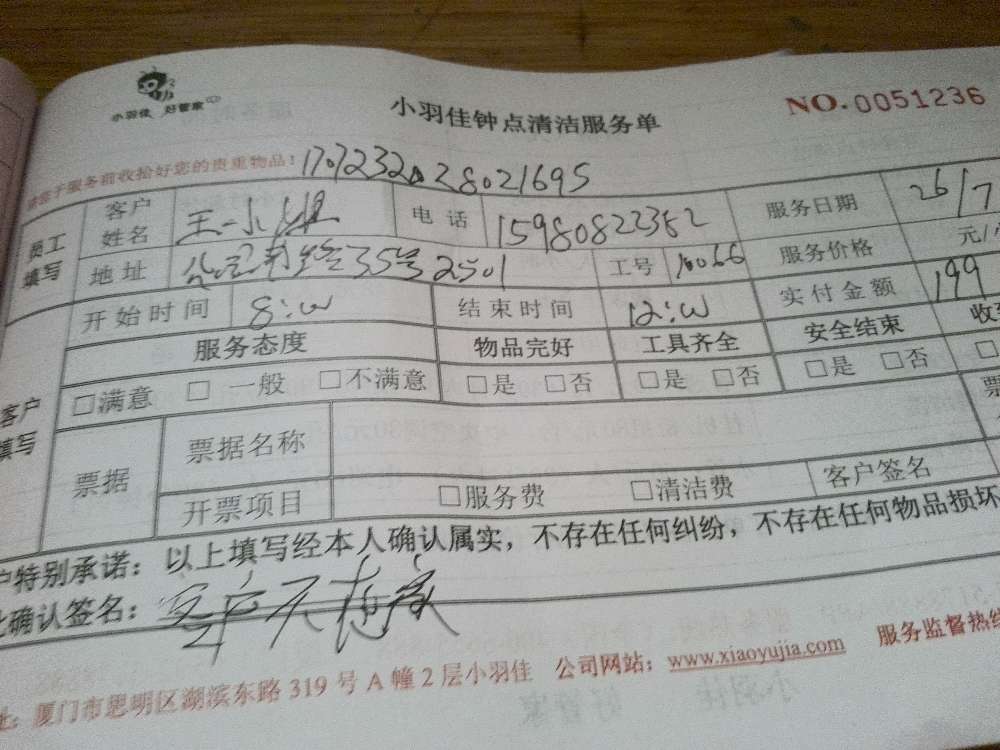 小羽佳 好管家
小羽佳钟点清洁服务单
NO.0051236
于服务前收拾好您的贵重物品！ 28021695
员工填写
客户姓名 王小姐 电话 15980822382 服务日期 26/7
地址 35号2501 工号 10066 服务价格 元/
开始时间 8:00 结束时间 12:00 实付金额 199
服务态度 物品完好 工具齐全 安全结束 收
□满意 □一般 □不满意 □是 □否 □是 □否 □是 □否 □
客户填写
票据 票据名称 票
开票项目 □服务费 □清洁费 客户签名
户特别承诺：以上填写经本人确认属实，不存在任何纠纷，不存在任何物品损坏
确认签名：客户不在家
厦门市思明区湖滨东路319号A幢2层小羽佳 公司网站：www.xiaoyujia.com 服务监督热线